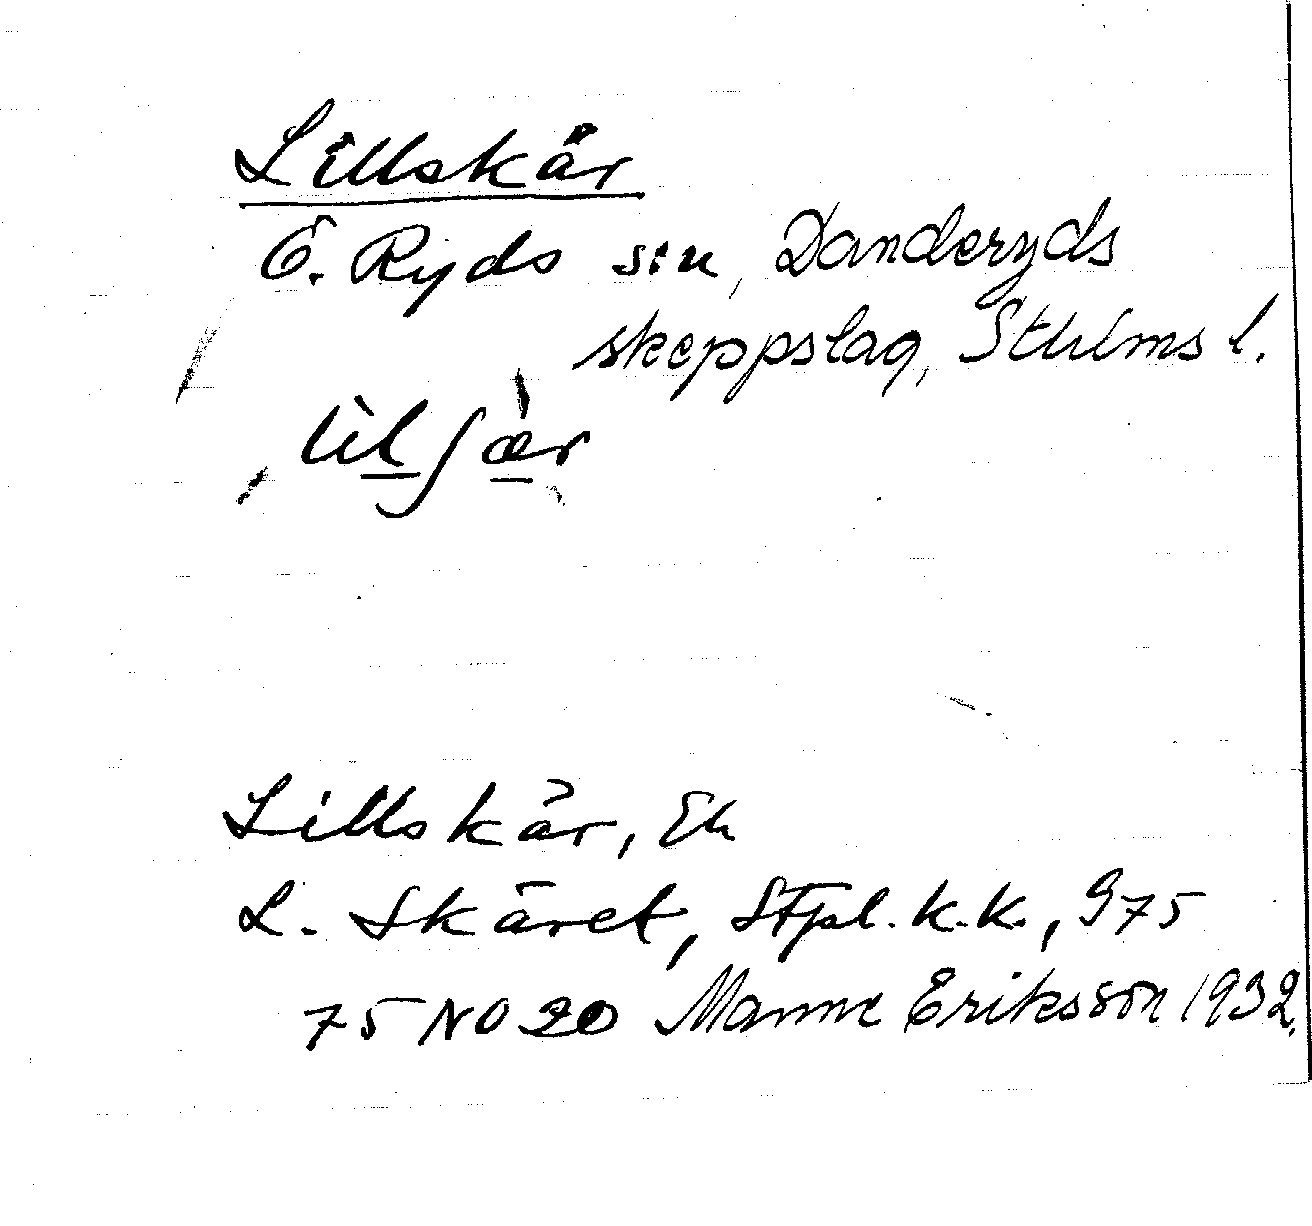 Lillskär
Ö. Ryds sn, Danderyds
skeppslag, Sthlms l.
Lillskär, Ek
L. Skäret, Stpl. k.k., 975
75 NO 20 Manne Eriksson 1932.